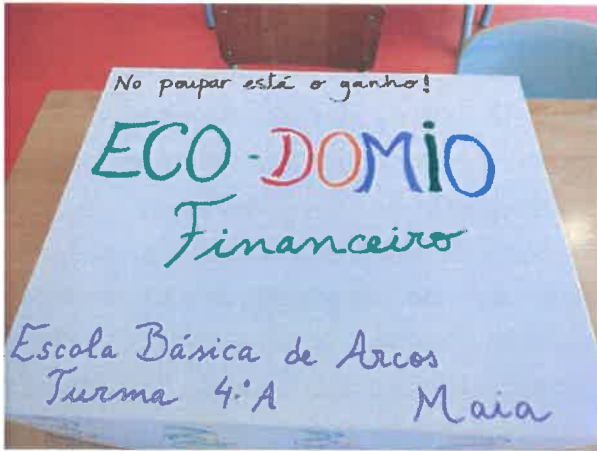 No poupar está o ganho!
ECO-DOMIO
Financeiro
Escola Básica de Arcos
Turma 4.ºA Maia